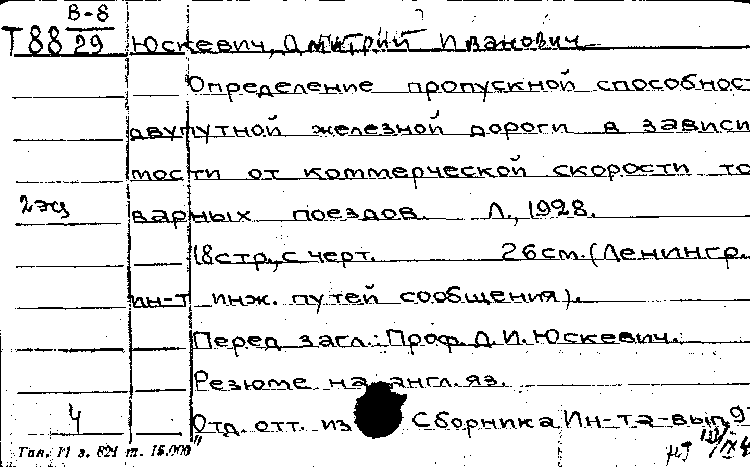 В-8
Т88 29 Юскевич, Дмитрий Иванович
Определение пропускной способнос
двупутной железной дороги в зависи
мости от коммерческой скорости то
2 эц варных поездов. Л., 1928.
18стр., с черт. 26см. (Ленингр.
ин-т инж. путей сообщения).
Перед загл.: Проф. Д. И. Юскевич.
Резюме на англ. яз.
4 Отд. отт. из Сборника Ин-та-вып. 9
Тип. з. 821 т. 15.000